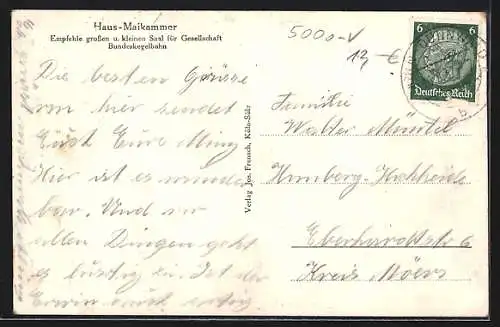 Haus-Maikammer
Empfehle großen u. kleinen Saal für Gesellschaft
Bundeskegelbahn
5000-V
12,-€
6 6
Deutsches Reich
Die besten Grüsse
von hier sendet
Euch Eure
Hier ist es wunder
bar. Und vor
allen Dingen geht
es lustig zu. Ist der
Erwin auch artig.
Verlag Jos. Frensch, Köln-Sülz
Familie
Walter Müntel
Homberg-Hochheide
Eberhardtstr 6
Kreis Möers